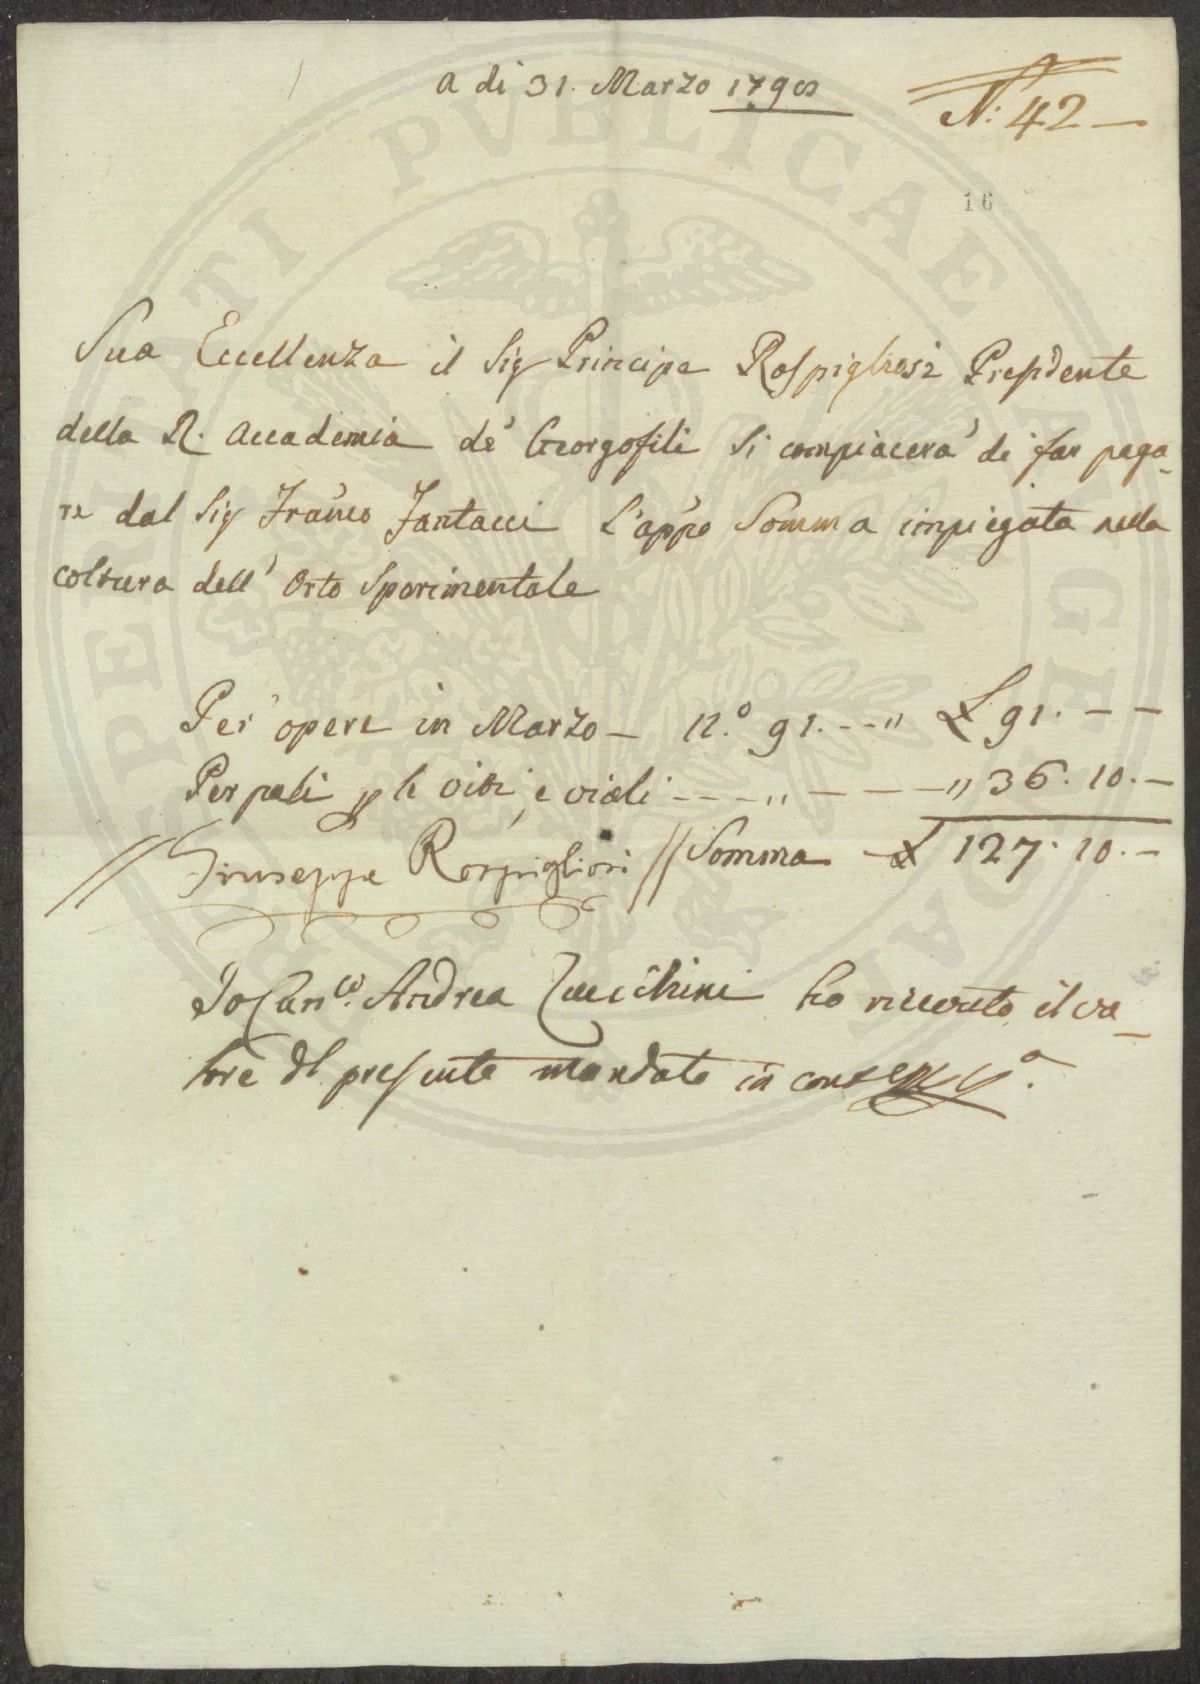 a di 31. Marzo 1790
N: 42
16
Sua Eccellenza il Sig Principe Rospigliosi Presidente
della R. Accademia de' Georgofili si compiacera' di far paga-
re dal Sig Franco Fantacci l'appo Somma impiegata nella
coltura dell' Orto Sperimentale
Per opere in Marzo - n.º 91. --- " £ 91. - -
Per pali p le viti, e viali --- " --- " 36. 10. -
// Giuseppe Rospigliosi // Somma - £ 127. 10. -
Io Can.co Andrea Zucchini ho ricevuto il va-
lore del presente mandato in